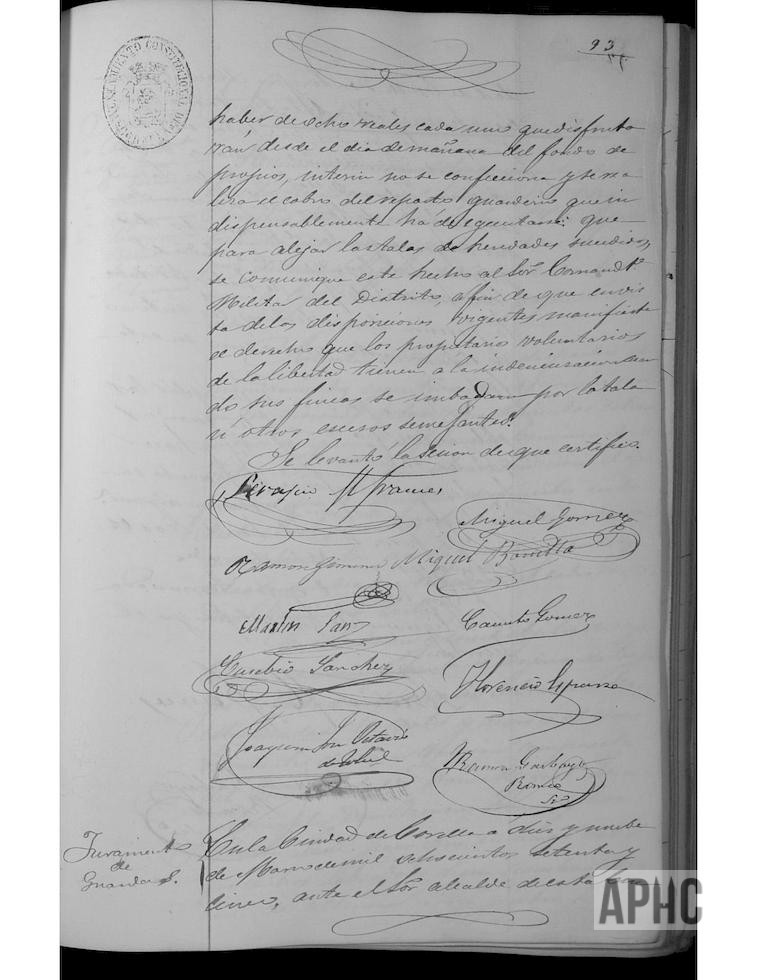 93
haber de ocho reales cada uno que disfruta
rán desde el dia de mañana del fondo de
propios, interin no se confecciona y se rea
liza el cobro del reparto guarderio que in
dispensablemente há de egecutarse: que
para alejar las talas de heredades sucedidas,
se comunique este hecho al Sor. Comandte.
Militar del Distrito, a fin de que en vis
ta de las disposiciones vigentes manifieste
el derecho que los propietarios voluntarios
de la libertad tienen a la indemnizacion cuan
do sus fincas se imbadan por la tala
ú otros escesos semejantes.
Se levantó la sesion de que certifico.
Miguel Gomez
Ramon Gimenez Miguel Bonilla
Martin Sanz
Canuto Gomez
Eusebio Sanchez
Florencio Esparza
Joaquin José Octavio
de Toledo
Ramon Garbayo
Romeo
Juramento
de
Guardas.
En la Ciudad de Corella a diez y nuebe
de Marzo de mil ochocientos setenta y
cinco, ante el Sor. alcalde de esta
APHC